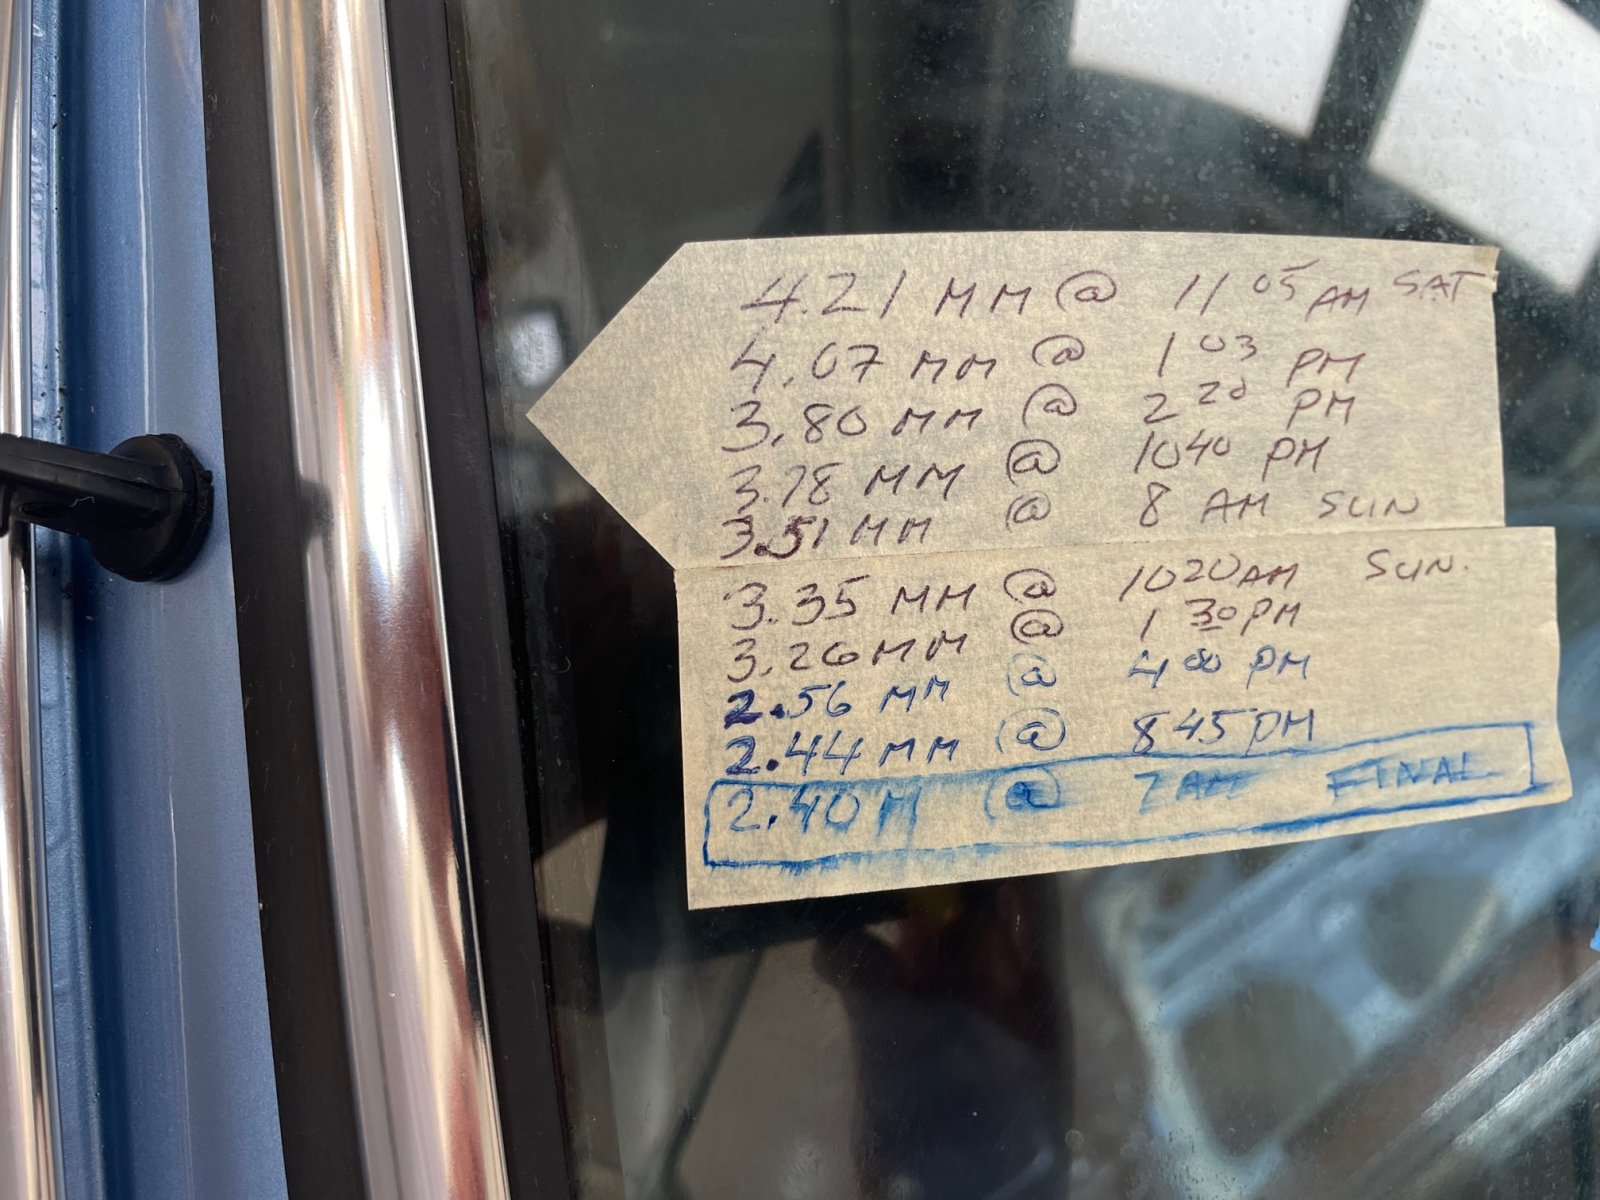 4.21 MM @ 11 05 AM SAT
4.07 MM @ 1 03 PM
3.80 MM @ 2 20 PM
3.78 MM @ 10 40 PM
3.51 MM @ 8 AM SUN
3.35 MM @ 10 20 AM SUN.
3.26 MM @ 1 30 PM
2.56 MM @ 4 00 PM
2.44 MM @ 8 45 PM
2.40 M @ 7 AM FINAL